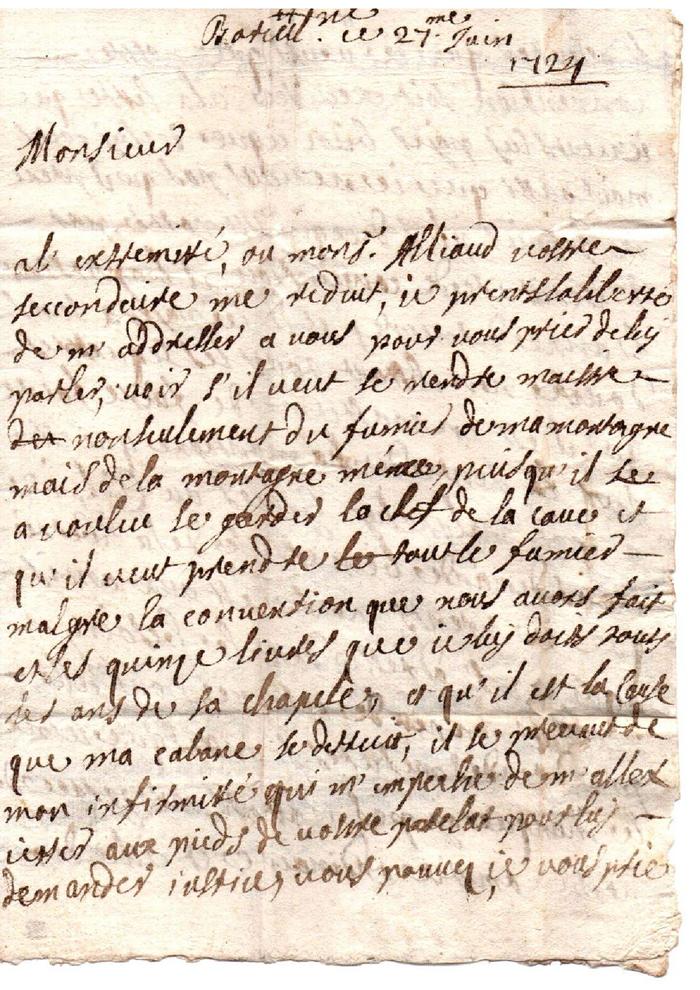 ce 27.me Juin
1724
Monsieur
a l'extremité, ou mons.r Alliaud vostre
seccondaire me reduit, ie prents la liberté
de m'addresser a vous pour vous prier de luy
parler, voir s'il veut se rendre maistre
non seulement du fumier de ma montagne
mais de la montagne méme puisqu'il se
a voulut se garder la clef de la cave et
qu'il veut prendre le tout le fumier
malgre la convention que nous avons fait
et les quinze livres que ie luy doits touts
les ans de sa chapele, et qu'il est la cause
que ma cabane se destruit, il se prevaut de
mon infirmité qui m'empeche de m'aller
ietter aux pieds de vostre prelat pour luy
demander iustice, vous pouvez ie vous prie